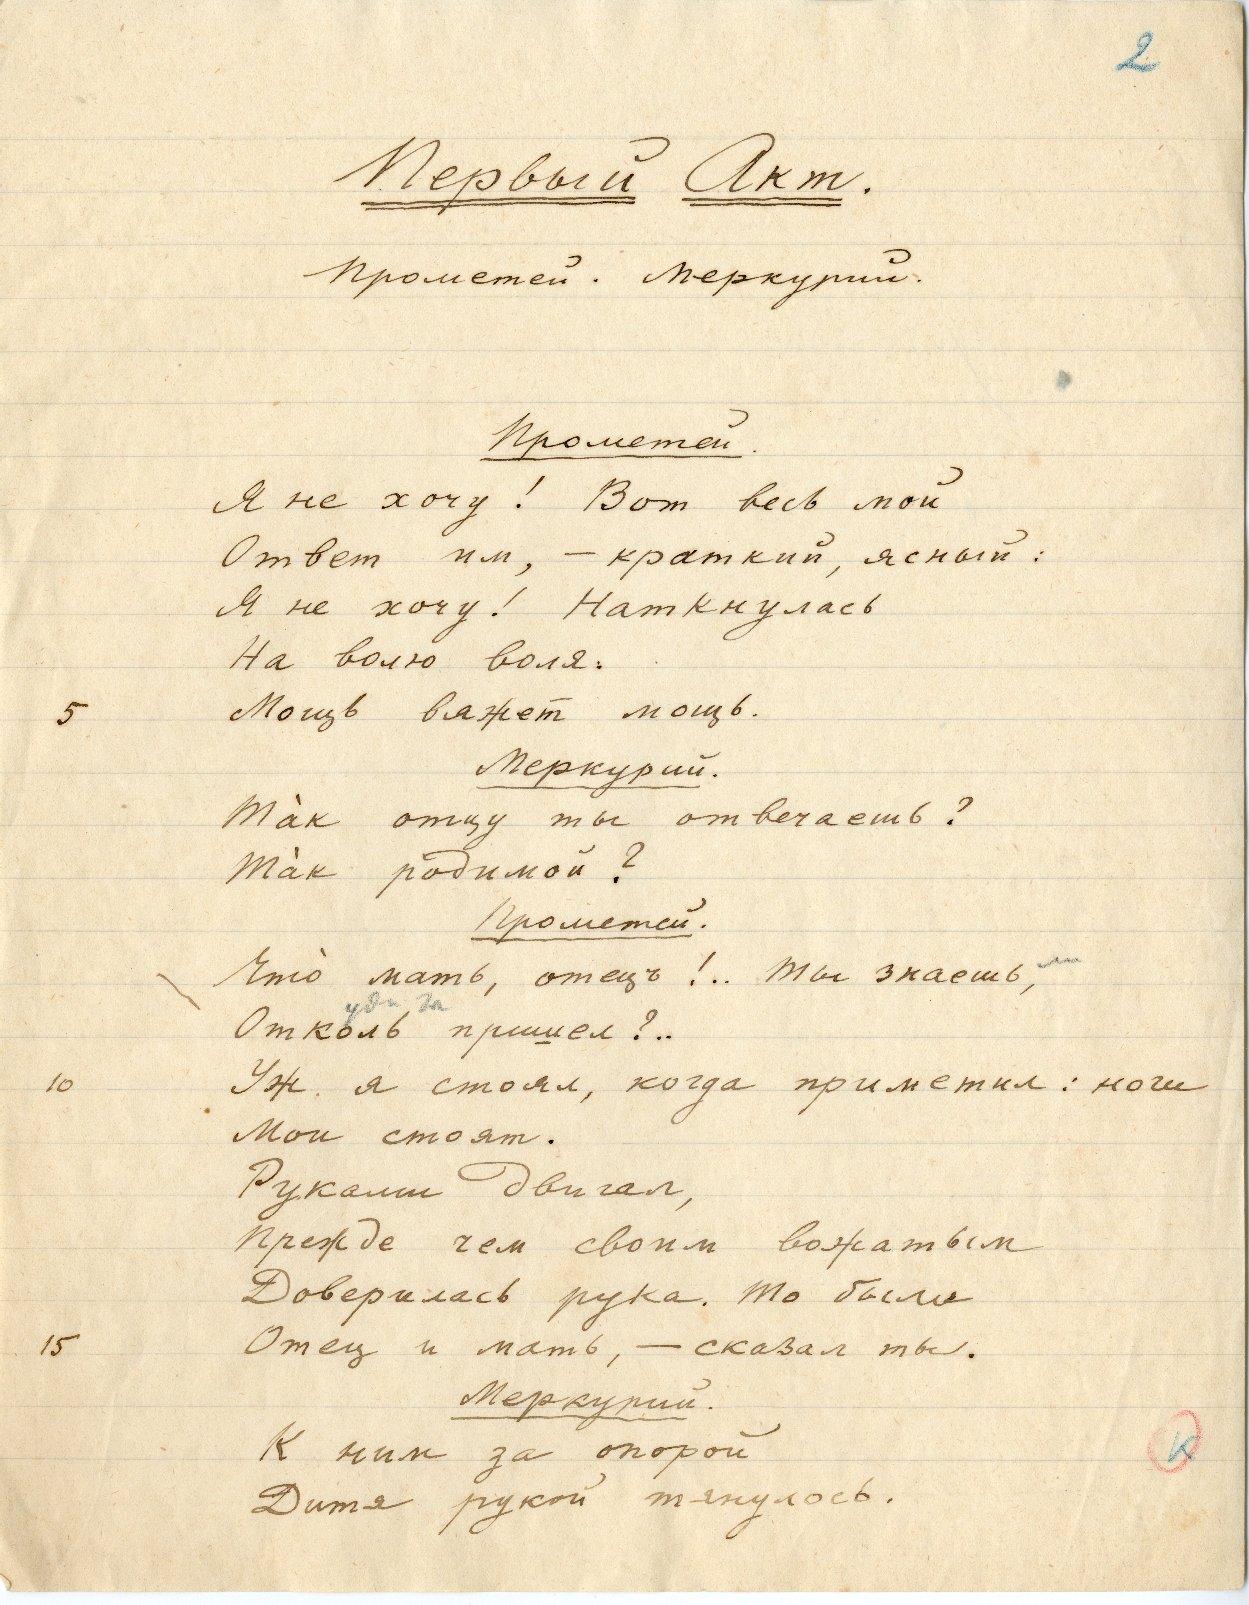 2
Первый Акт.
Прометей. Меркурий.
Прометей.
Я не хочу! Вот весь мой
Ответ им, — краткий, ясный:
Я не хочу! Наткнулась
На волю воля:
5 Мощь вяжет мощь.
Меркурий.
Та̀к отцу ты отвечаешь?
Та̀к родимой?
Прометей.
Что̀ мать, отець!.. Ты знаешь, ли
Отколь пришел?..
10 Уж я стоял, когда приметил: ноги
Мои стоят.
Руками двигал,
Прежде чем своим вожатым
Доверилась рука. То были
15 Отец и мать, — сказал ты.
Меркурий.
К ним за опорой
Дитя рукой тянулось.
К